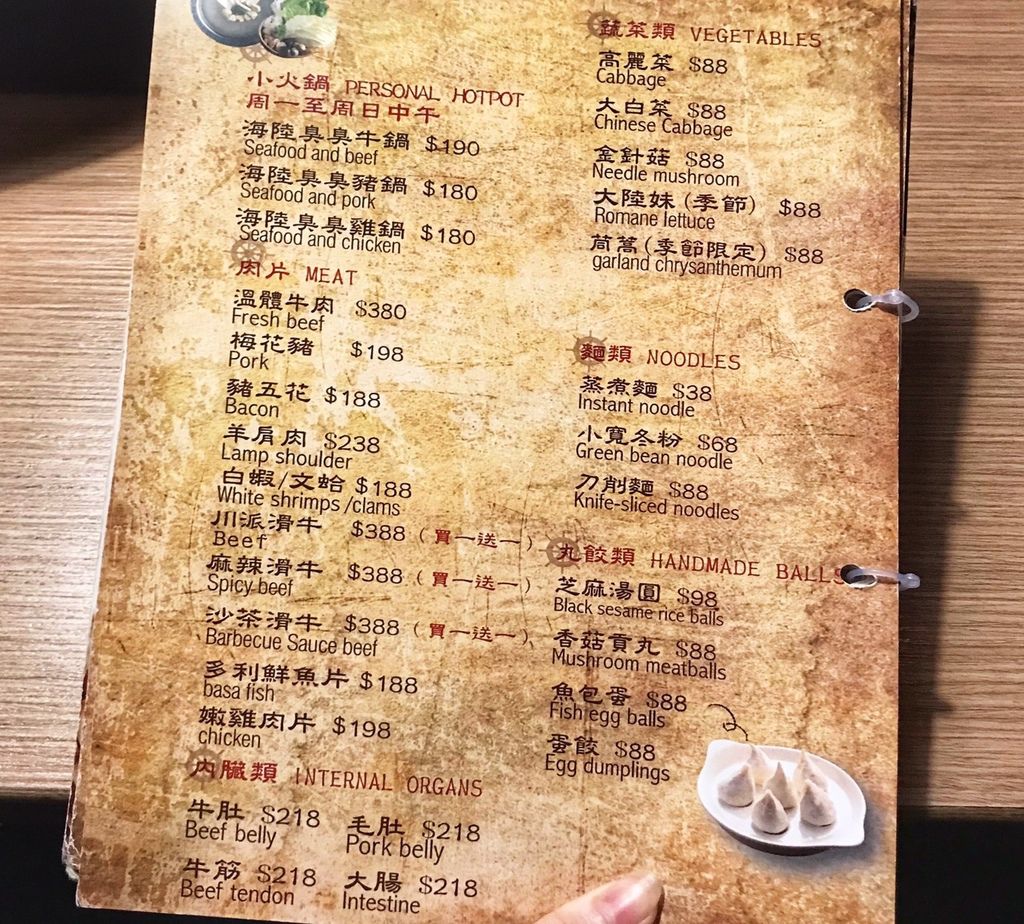 小火鍋 PERSONAL HOTPOT
周一至周日中午
海陸臭臭牛鍋 $190
Seafood and beef
海陸臭臭豬鍋 $180
Seafood and pork
海陸臭臭雞鍋 $180
Seafood and chicken
肉片 MEAT
溫體牛肉 $380
Fresh beef
梅花豬 $198
Pork
豬五花 $188
Bacon
羊肩肉 $238
Lamp shoulder
白蝦/文蛤 $188
White shrimps /clams
川派滑牛 $388 (買一送一)
Beef
麻辣滑牛 $388 (買一送一)
Spicy beef
沙茶滑牛 $388 (買一送一)
Barbecue Sauce beef
多利鮮魚片 $188
basa fish
嫩雞肉片 $198
chicken
內臟類 INTERNAL ORGANS
牛肚 $218 毛肚 $218
Beef belly Pork belly
牛筋 $218 大腸 $218
Beef tendon Intestine
蔬菜類 VEGETABLES
高麗菜 $88
Cabbage
大白菜 $88
Chinese Cabbage
金針菇 $88
Needle mushroom
大陸妹(季節) $88
Romane lettuce
茼蒿(季節限定) $88
garland chrysanthemum
麵類 NOODLES
蒸煮麵 $38
Instant noodle
小寬冬粉 $68
Green bean noodle
刀削麵 $88
Knife-sliced noodles
丸餃類 HANDMADE BALLS
芝麻湯圓 $98
Black sesame rice balls
香菇貢丸 $88
Mushroom meatballs
魚包蛋 $88
Fish egg balls
蛋餃 $88
Egg dumplings